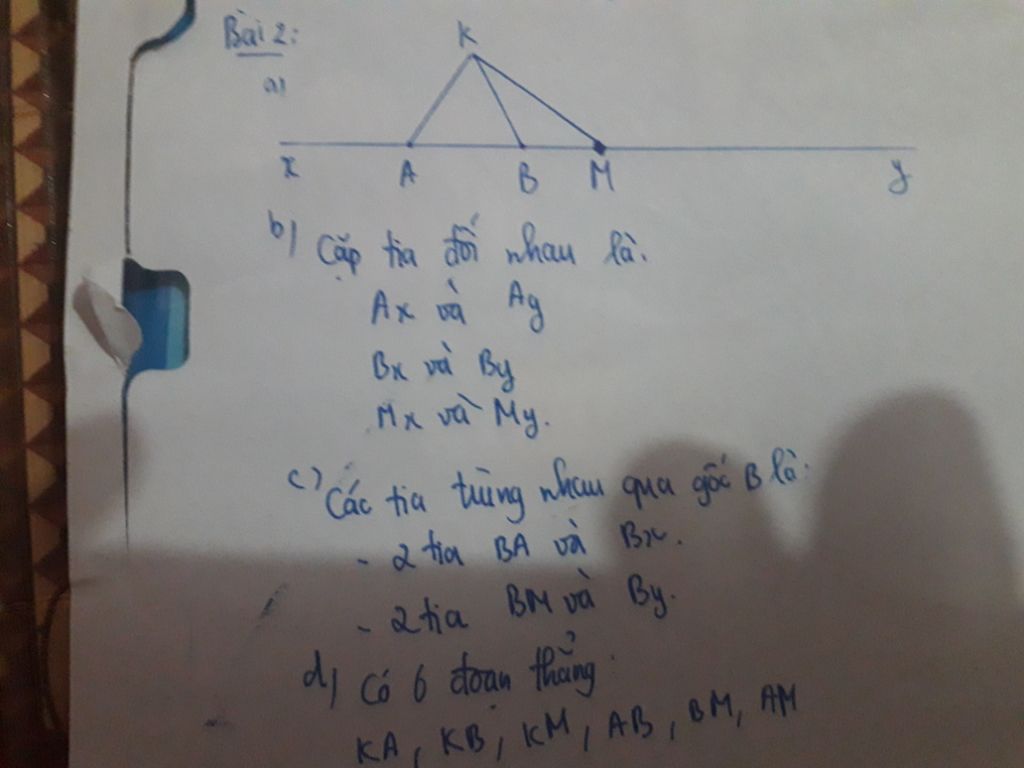 Bài 2:
a)
K
x A B M y
b) Cặp tia đối nhau là:
Ax và Ay
Bx và By
Mx và My.
c) Các tia trùng nhau qua gốc B là:
- 2 tia BA và Bx.
- 2 tia BM và By.
d) Có 6 đoạn thẳng:
KA, KB, KM, AB, BM, AM